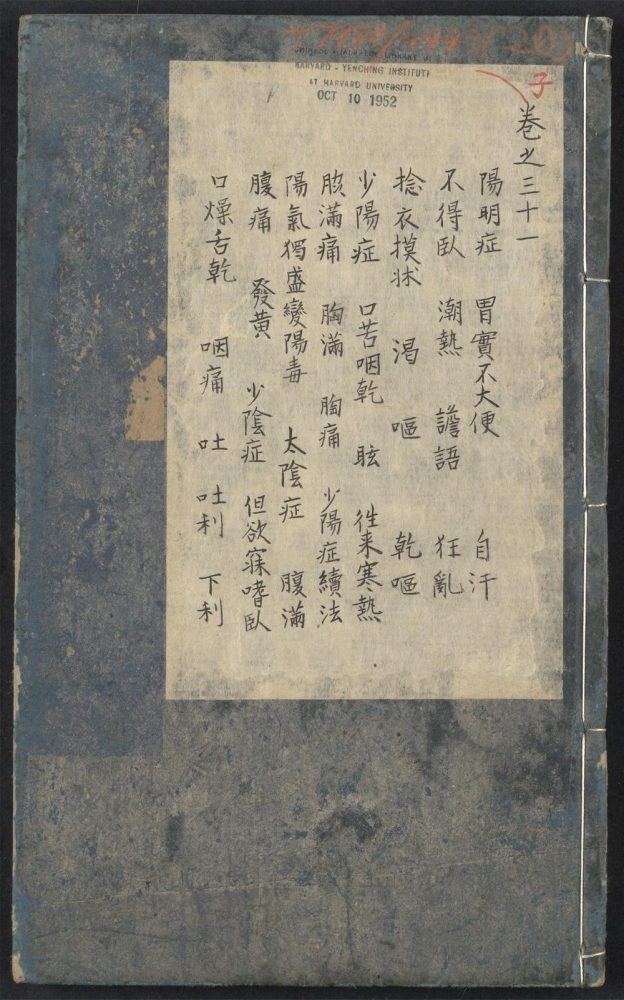 CHINESE - JAPANESE LIBRARY OF
HARVARD - YENCHING INSTITUTE
AT HARVARD UNIVERSITY
OCT 10 1952
子
卷之三十一
陽明症 胃實不大便 自汗
不得臥 潮熱 譫語 狂亂
捻衣摸牀 渴 嘔 乾嘔
少陽症 口苦咽乾 眩 徃来寒熱
脇滿痛 胸滿 胸痛 少陽症續法
陽氣獨盛變陽毒 太陰症 腹滿
腹痛 發黄 少陰症 但欲寐嗜臥
口燥舌乾 咽痛 吐 吐利 下利